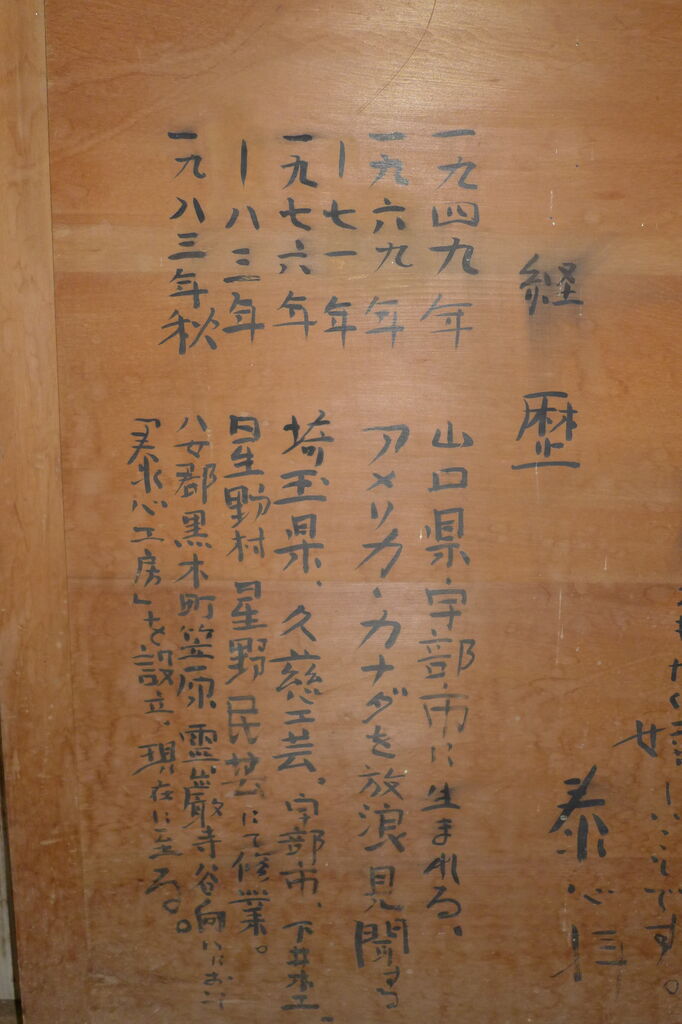 女
です。
泰心
経歴
一九四九年 山口県宇部市に生まれる、
一九六九年 アメリカ・カナダを放浪見聞する
ー七一年
一九七六年 埼玉県、久慈工芸。宇部市、下井
ー八三年 星野村星野民芸にて修業。
一九八三年秋 八女郡黒木町笠原霊巌寺谷向いにおいて
「泰心工房」を設立、現在に至る。